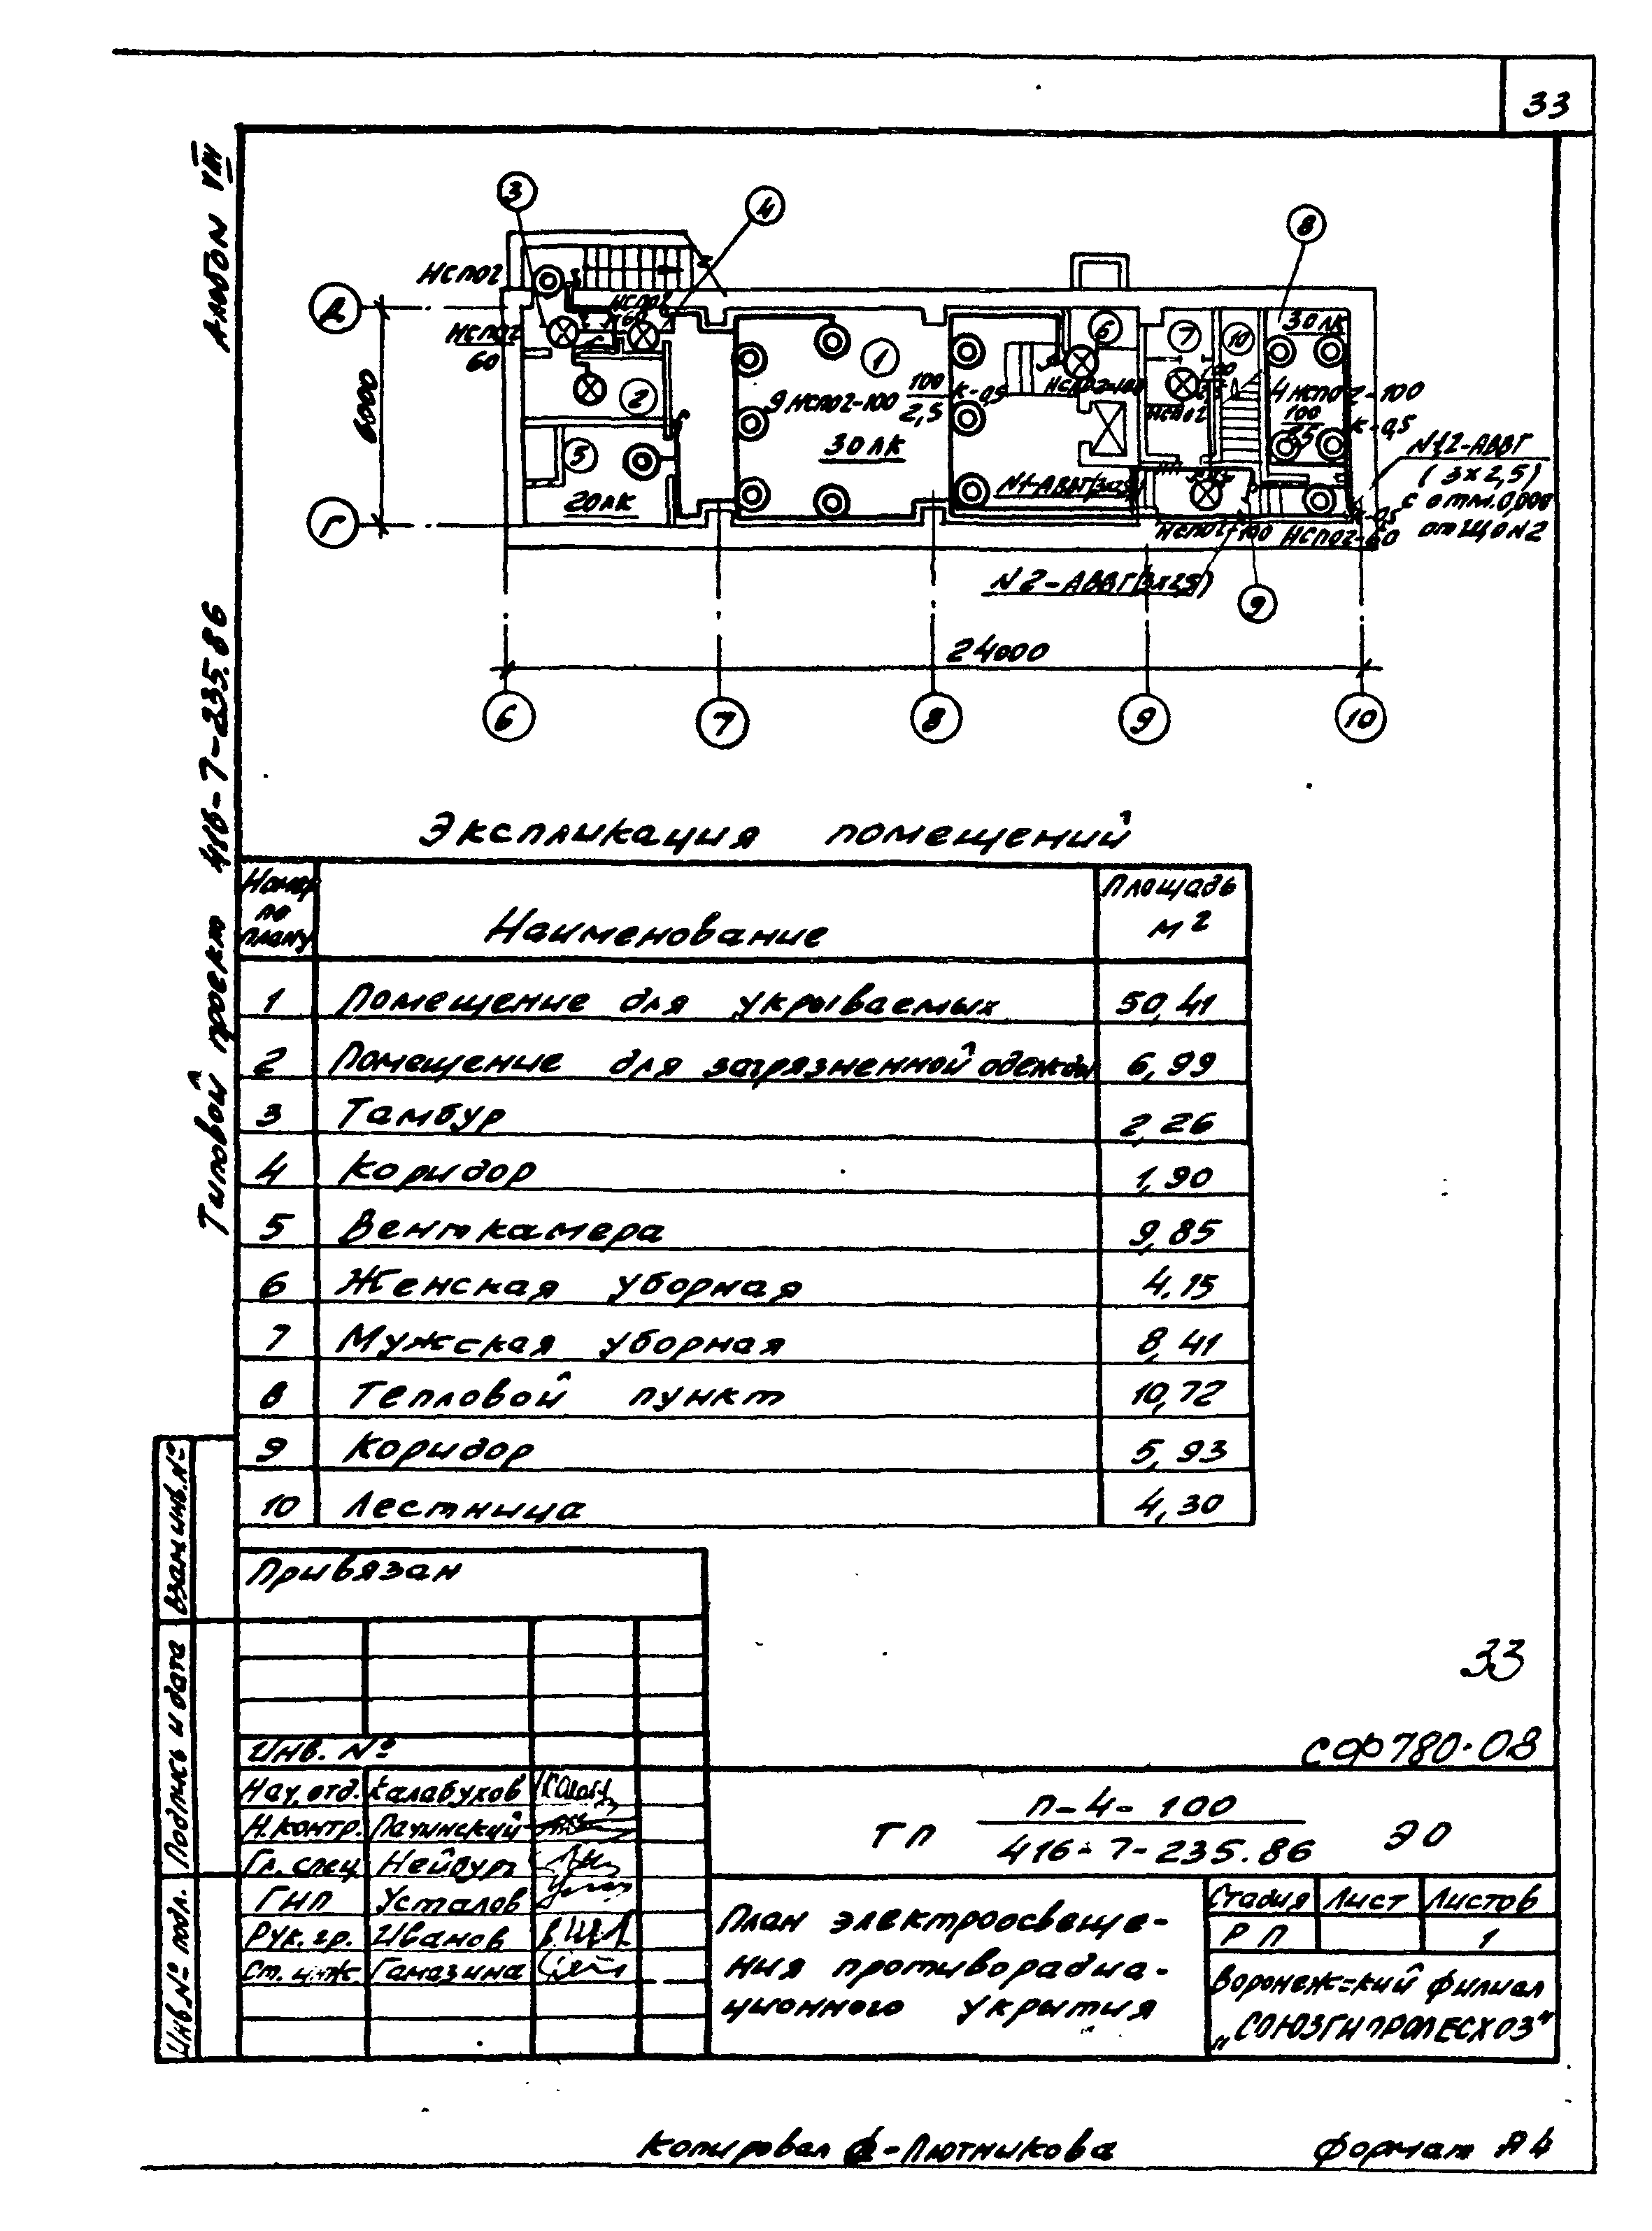 33
Альбом VIII
Типовой проект 416-7-235.86
3
4
8
НСП02
НСП02
60
НСП02
Д
Г
6000
1
2
5
6
7
10
9 НСП02-100
100
2,5
К-0,5
30 лк
20 лк
30 лк
4 НСП02-100
К-0,5
НСП02-100
НСП02
N1-АВВГ
НСП02-100
НСП02-60
N1,2-АВВГ
(3х2,5)
с отм. 0,000
от ЩО N2
N2-АВВГ(3х2,5)
9
24000
6
7
8
9
10
Экспликация помещений
Номер по плану Наименование Площадь м²
1 Помещение для укрываемых 50,41
2 Помещение для загрязненной одежды 6,99
3 Тамбур 2,26
4 Коридор 1,90
5 Венткамера 9,85
6 Женская уборная 4,15
7 Мужская уборная 8,41
8 Тепловой пункт 10,72
9 Коридор 5,93
10 Лестница 4,30
Привязан
Инв. №
33
СФ780-08
Нач. отд. Калабухов
Н. контр. Пачинский
Гл. спец Нейбург
ГИП Усталов
Рук. гр. Иванов
Ст. инж. Гамазина
ТП П-4-100
416-7-235.86
ЭО
План электроосвеще-
ния противорадиа-
ционного укрытия
Стадия Лист Листов
РП 1
Воронежский филиал
„СОЮЗГИПРОЛЕСХОЗ"
Взам инв. №
Подпись и дата
Инв № подл.
Копировал Лютикова
Формат А4